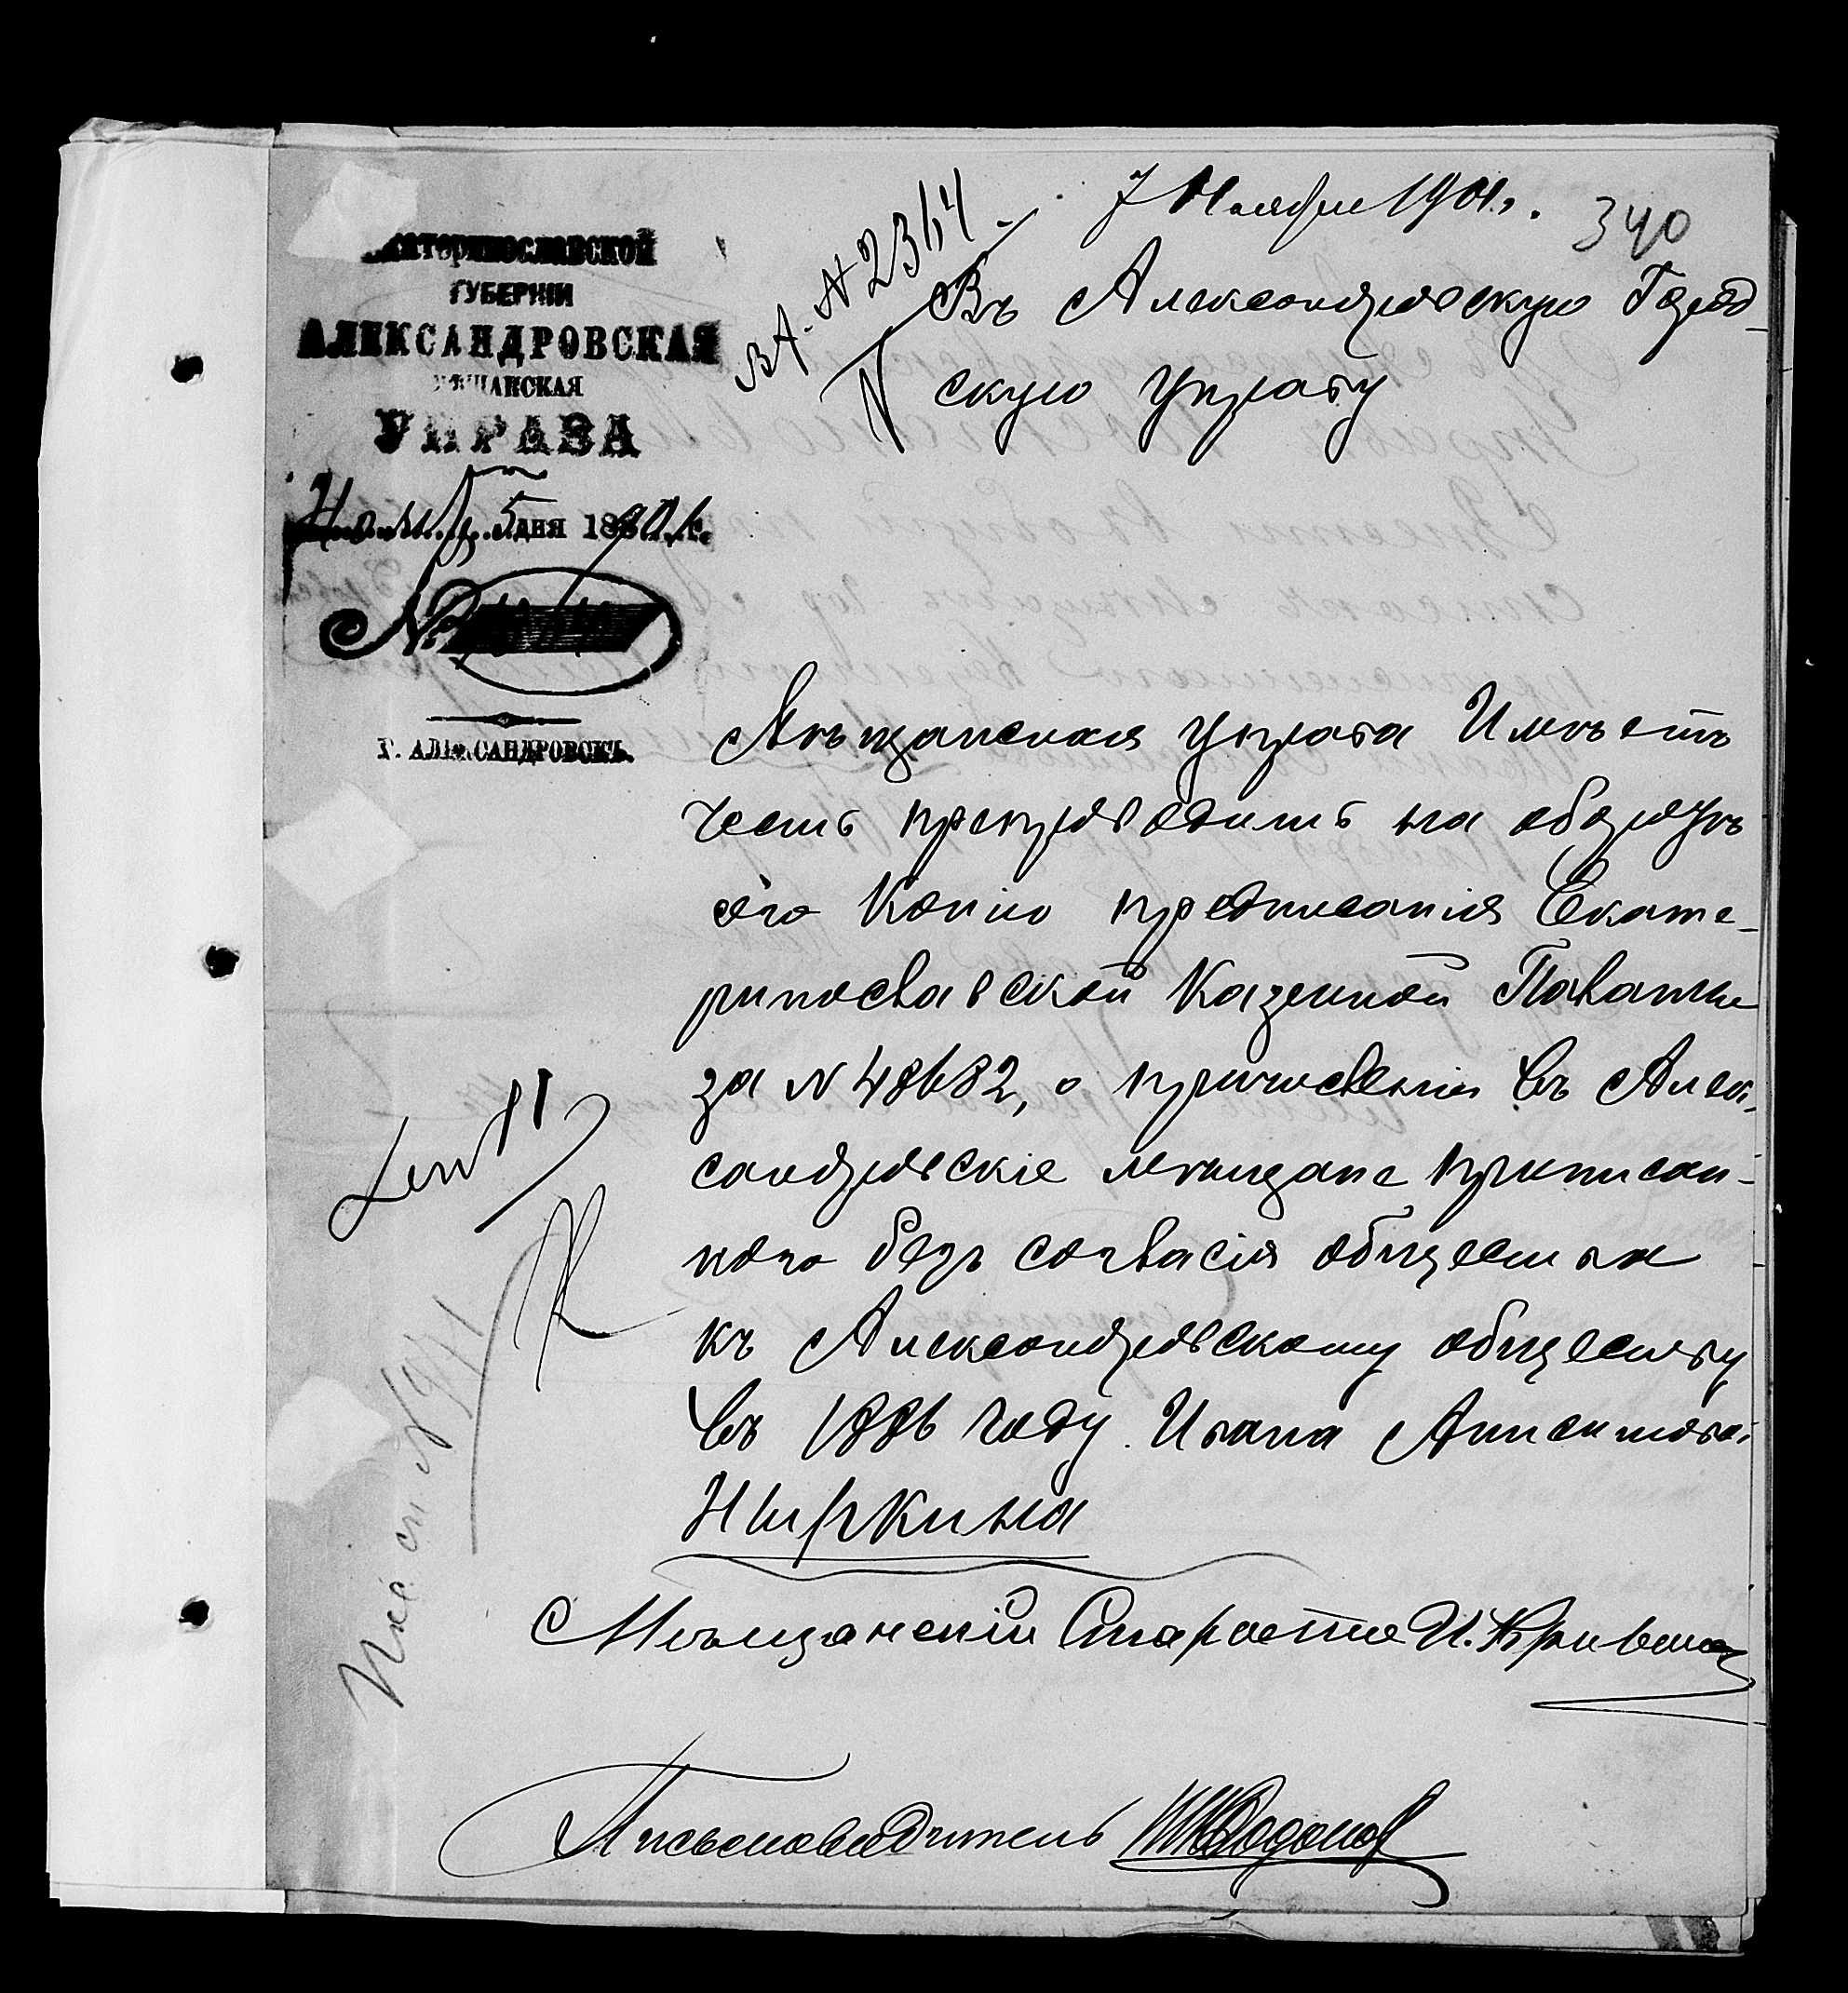 7 Ноября 1901 г.
340
ЕКАТЕРИНОСЛАВСКОЙ
ГУБЕРНІИ
АЛЕКСАНДРОВСКАЯ
МѢЩАНСКАЯ
УПРАВА
Ноября 5 дня 1901 г.
№
Г. АЛЕКСАНДРОВСКЪ.
Въ Александровскую Город-
скую Управу
Мѣщанская Управа Имѣетъ
честь препроводить на оборотѣ
сего Копію предписанія Екате-
ринославской Казенной Палаты
за N 48682, о причисленіи въ Алек-
сандровскіе мѣщане приписан-
ного безъ согласія общества
къ Александровскому обществу
въ 1886 году Ивана Анисимова
Ныркина
Мѣщанскій Староста И. Кривеша
Письмоводитель